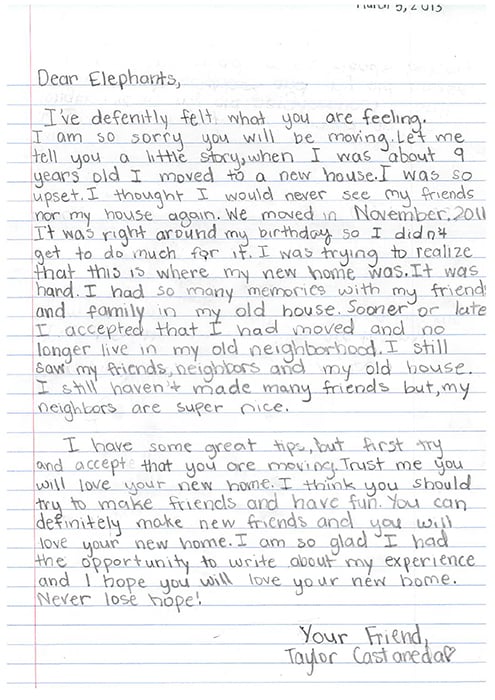 March 5, 2013
Dear Elephants,
I've defenitly felt what you are feeling.
I am so sorry you will be moving. Let me
tell you a little story, when I was about 9
years old I moved to a new house. I was so
upset. I thought I would never see my friends
nor my house again. We moved in November, 2011
It was right around my birthday so I didn't
get to do much for it. I was trying to realize
that this is where my new home was. It was
hard. I had so many memories with my friend
and family in my old house. Sooner or late
I accepted that I had moved and no
longer live in my old neighborhood. I still
saw my friends, neighbors and my old house.
I still haven't made many friends but, my
neighbors are super nice.
I have some great tips, but first try
and accept that you are moving. Trust me you
will love your new home. I think you should
try to make friends and have fun. You can
definitely make new friends and you will
love your new home. I am so glad I had
the opportunity to write about my experience
and I hope you will love your new home.
Never lose hope!
Your Friend,
Taylor Castaneda♡